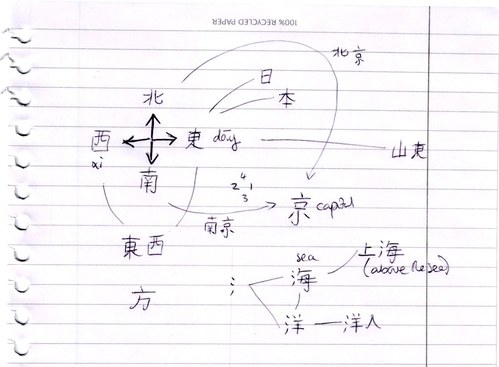 100% RECYCLED PAPER
北京
日
本
北
西
東 dōng
xi
南
山東
4
2 1
3
南京
京 capital
東西
方
sea
氵
海
上海
(above the sea)
洋 — 洋人